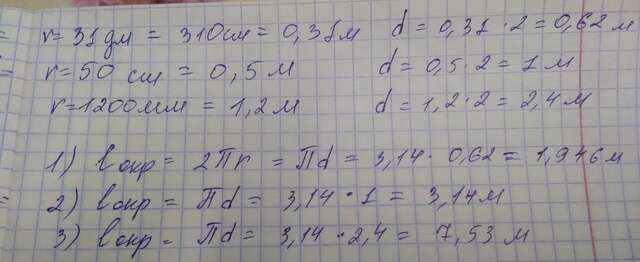 r = 31 дм = 310 см = 0,31 м d = 0,31 · 2 = 0,62 м
r = 50 см = 0,5 м d = 0,5 · 2 = 1 м
r = 1200 мм = 1,2 м d = 1,2 · 2 = 2,4 м
1) l окр = 2Пr = Пd = 3,14 · 0,62 = 1,946 м
2) l окр = Пd = 3,14 · 1 = 3,14 м
3) l окр = Пd = 3,14 · 2,4 = 7,53 м